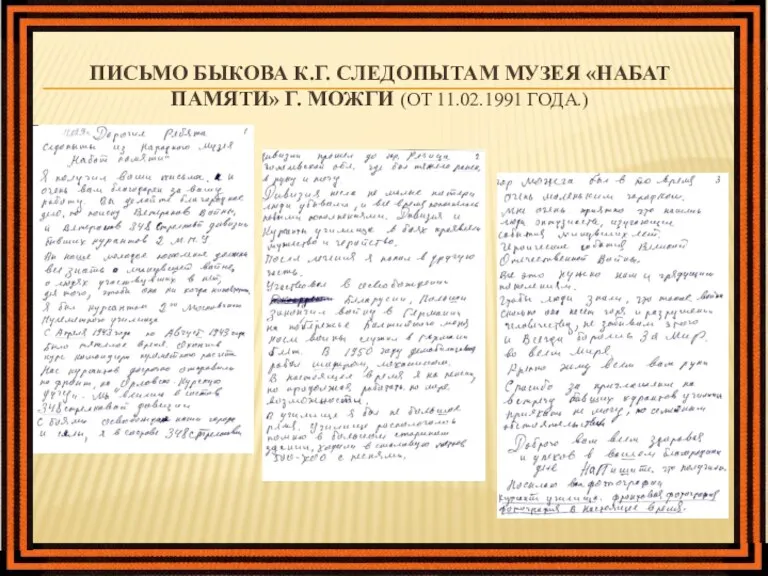 ПИСЬМО БЫКОВА К.Г. СЛЕДОПЫТАМ МУЗЕЯ «НАБАТ
ПАМЯТИ» Г. МОЖГИ (ОТ 11.02.1991 ГОДА.)
Дорогия Ребята 1
следопыты из Народного музея
Набат памяти"
Я получил ваши письма, и
очень вам благодарен за вашу
работу. Вы делаете благородное
дело, по поиску Ветеранов Войны,
и Ветеранов 348 стрелковой дивизии
бывших курсантов 2 М.П.У
Да наше молодое поколение должно
все знать о минувшей войне,
о людях участвувших в ней,
для того, чтобы она ни когда
Я был курсантом 2го Московского
Пулеметного училища
С Апреля 1943 года по Август 1943 года
было тяжелое время. Окончив
курс командира пулеметного расчета
Нас курсантов досрочно отправили
на фронт, на Орловско-Курскую
дугу. Мы влились в состав
348 стрелковой дивизии
С боями освобождая наши города
и сёлы, я в составе 348 Стрелковой
дивизии прошел до гор. Речица 2
Гомелевской обл. где был тяжело ранен,
в руку и ногу
Дивизия несла не малые потери
люди убывали, и все время пополнялась
новыми пополнениями. Дивизия и
Курсанты училища в боях проявляли
мужество и геройство.
После лечения я попал в другую
часть.
Участвовал в освобождении
Беларусии, Польши
закончил войну в Германии
на побережье Балтийского моря
после войны служил в Германии
В 1950 году демобилизовался
работал шахтером, механиком.
В настоящее время я на пенсии,
но продолжаю работать по мере
возможности.
В училище я был не большое
время. Училище располагалось
помню в большом старинном
здании, ходили в столовую метров
300-400 с песнями.
гор Можга был в то время 3
очень маленьким городком.
Мне очень приятно что нашлись
люди энтузиасты, изучающие
события минувших лет
Героические события Великой
Отечественной Войны.
Все это нужно нам и грядущим
поколениям.
Чтобы люди знали, что такое война
сколько она несет горя, и разрушений
человечеству, не забывали этого
и Всегда боролись За Мир.
во всем мире
Крепко жму всем вам руки
Спасибо за приглашение на
встречу бывших курсантов училища
приехать не могу, по семейным
обстоятельствам
Доброго вам всем здоровья
и успехов в вашем благородном
деле Напишите, что получили.
Посылаю вам фотографии
курсанта училища. фронтовая фотография
фотография в настоящее время.